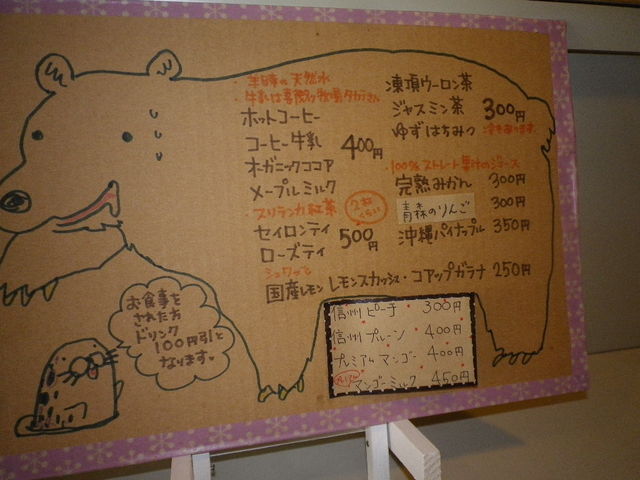 天然水
牛乳は
ホットコーヒー
コーヒー牛乳
400円
オーガニックココア
メープルミルク
スリランカ紅茶
2杯くらい
セイロンティ
500円
ローズティ
シュワッと
国産レモン レモンスカッシュ・コアップガラナ 250円
凍頂ウーロン茶
ジャスミン茶
300円
ゆずはちみつ
冷もあります。
100%ストレート果汁のジュース
完熟みかん 300円
青森のりんご 300円
沖縄パイナップル 350円
信州ピーチ 300円
信州プルーン 400円
プレミアムマンゴー 400円
マンゴーミルク 450円
お食事を
された方
ドリンク
100円引と
なります。